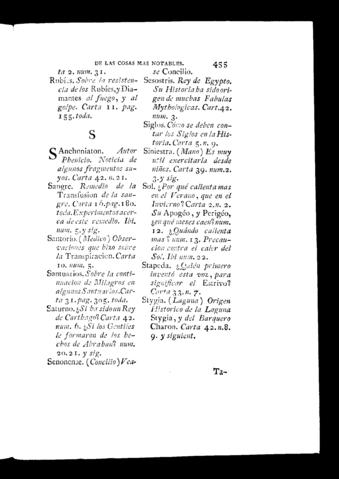 DE LAS COSAS MAS NOTABLES. 455
ta 2. num. 31.
Rubies. Sobre la resistencia
de los Rubies, y Diamantes
al fuego, y al
golpe. Carta 11. pag.
155. toda.
S
SAnchoniaton. Autor
Phenicio. Noticia de
algunos fragmentos suyos.
Carta 42. n. 21.
Sangre. Remedio de la
Transfusion de la sangre.
Carta 16. pag. 180.
toda. Experimentos acerca
de este remedio. Ibi.
num. 5. y sig.
Santorio. (Medico) Observaciones
que hizo sobre
la Transpiracion. Carta
10. num. 5.
Santuarios. Sobre la continuacion
de Milagros en
algunos Santuarios. Carta
31. pag. 305. toda.
Saturno. ¿Si ha sido un Rey
de Carthago? Carta 42.
num. 6. ¿Si los Gentiles
le formaron de los hechos
de Abrahan? num.
20. 21. y sig.
Senonense. (Concilio) Vease
Concilio.
Sesostris. Rey de Egypto.
Su Historia ha sido origen
de muchas Fabulas
Mythologicas. Cart. 42.
num. 3.
Siglos. Cómo se deben contar
los Siglos en la Historia.
Carta 5. n. 9.
Siniestra. (Mano) Es muy
util exercitarla desde
niños. Carta 39. num. 2.
3. y sig.
Sol. ¿Por qué calienta mas
en el Verano, que en el
Invierno? Carta 2. n. 2.
Su Apogéo, y Perigéo,
¿en qué meses caen? num.
12. ¿Quándo calienta
mas? num. 13. Precaucion
contra el calor del
Sol. Ibi num. 22.
Stapeda. ¿Quién primero
inventó esta voz, para
significar el Estrivo?
Carta 33. n. 7.
Stygia. (Laguna) Origen
Historico de la Laguna
Stygia, y del Barquero
Charon. Carta 42. n. 8.
9. y siguient.
Ta-